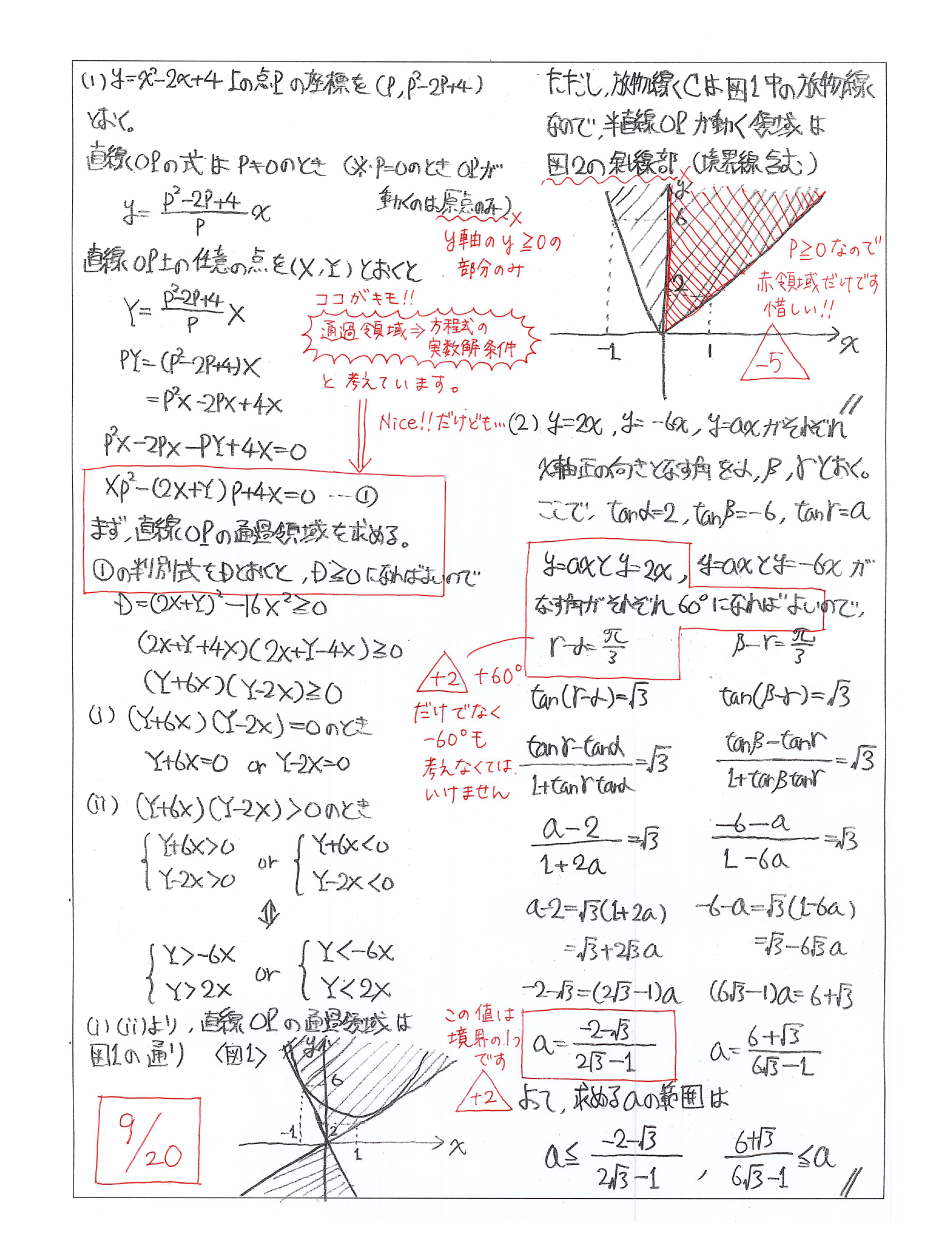 (1) y=x²-2x+4 上の点Pの座標を (P, P²-2P+4)
とおく。
直線OPの式は P≠0のとき (※P=0のとき OPが
動くのは原点のみ)
y= (P²-2P+4)/P x
y軸のy≧0の
部分のみ
直線OP上の任意の点を(X,Y)とおくと
Y= (P²-2P+4)/P X
ココがキモ!!
通過領域⇒方程式の
実数解条件
と考えています。
PY=(P²-2P+4)X
=P²X-2PX+4X
P²X-2PX-PY+4X=0
Nice!!だけども…
XP²-(2X+Y)P+4X=0 …①
まず,直線OPの通過領域を求める。
①の判別式をDとおくと,D≧0になればよいので
D=(2X+Y)²-16X²≧0
(2X+Y+4X)(2X+Y-4X)≧0
(Y+6X)(Y-2X)≧0
(i) (Y+6X)(Y-2X)=0のとき
Y+6X=0 or Y-2X=0
(ii) (Y+6X)(Y-2X)>0のとき
{Y+6X>0 or {Y+6X<0
{Y-2X>0 {Y-2X<0
⇕
{Y>-6X or {Y<-6X
{Y>2X {Y<2X
(i)(ii)より,直線OPの通過領域は
図1の通り 〈図1〉
y
6
2
-1
1
x
9/20
ただし,放物線Cは図1中の放物線
なので,半直線OPが動く領域は
図2の斜線部(境界線含む)
y
6
2
-1
1
x
P≧0なので
赤領域だけです
惜しい!!
-5
(2) y=2x, y=-6x, y=axがそれぞれ
x軸正の向きとなす角をα,β,γとおく。
ここで, tanα=2, tanβ=-6, tanγ=a
y=axとy=2x, y=axとy=-6xが
なす角がそれぞれ60°になればよいので,
γ-α=π/3 β-γ=π/3
+2 +60°
だけでなく
-60°も
考えなくては
いけません
tan(γ-α)=√3 tan(β-γ)=√3
(tanγ-tanα)/(1+tanγtanα)=√3 (tanβ-tanγ)/(1+tanβtanγ)=√3
(a-2)/(1+2a)=√3 (-6-a)/(1-6a)=√3
a-2=√3(1+2a) -6-a=√3(1-6a)
=√3+2√3a =√3-6√3a
-2-√3=(2√3-1)a (6√3-1)a=6+√3
a=(-2-√3)/(2√3-1) a=(6+√3)/(6√3-1)
この値は
境界の1つ
です
+2
よって,求めるaの範囲は
a≦(-2-√3)/(2√3-1) , (6+√3)/(6√3-1)≦a